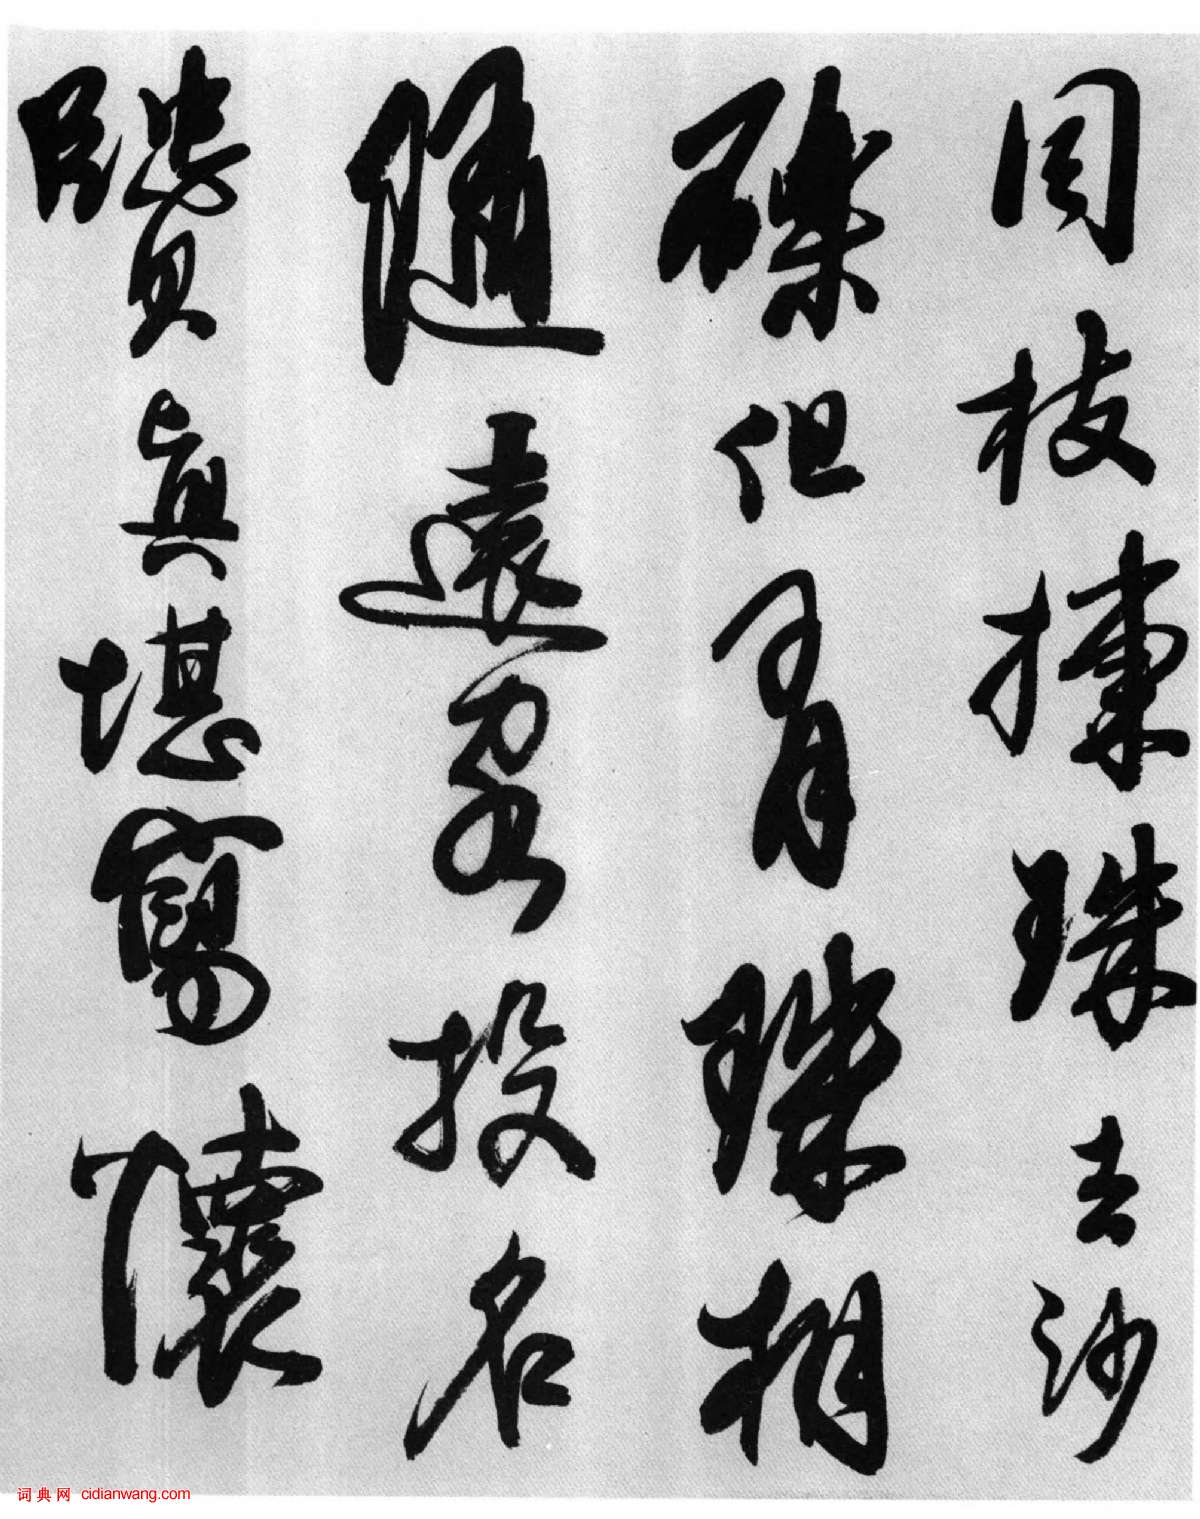 同枝揀珠去沙
礫但有珠相
隨遠客投名
賢真堪寫懷
词典网 cidianwang.com